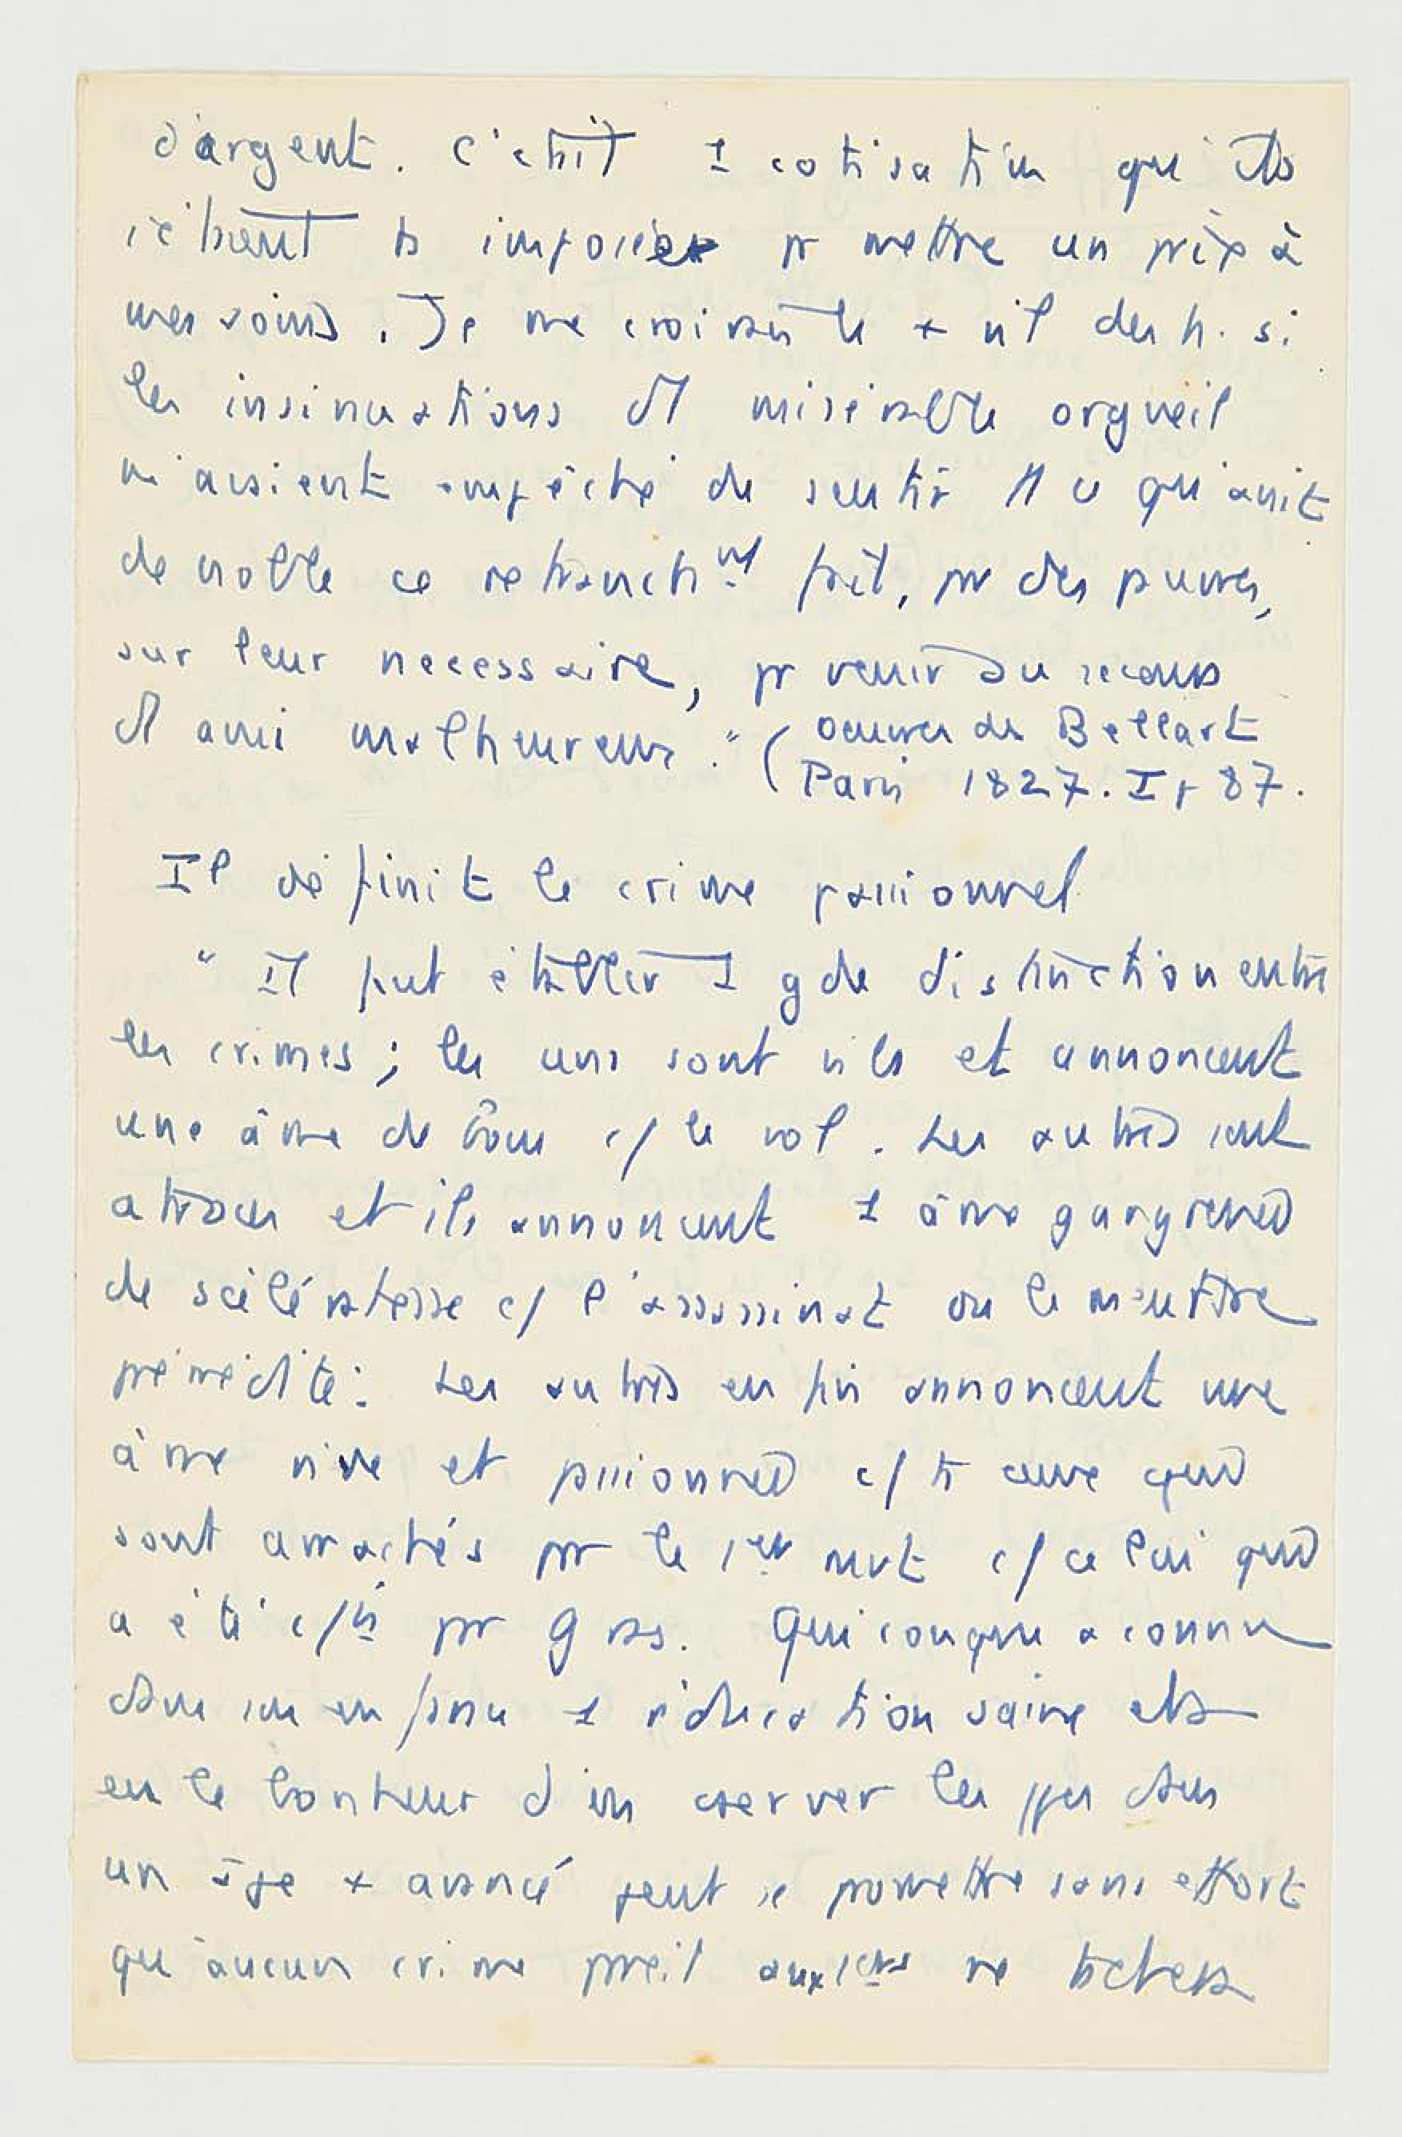 d'argent. C'était 1 cotisation qu'ils
s'étaient ts imposée pr mettre un prix à
mes soins. Je me croirais le + vil des h. si
les insinuations d'1 misérable orgueil
m'avaient empêché de sentir tt ce qu'avait
de noble ce retrancht fait, par des pauvres,
sur leur necessaire, pr venir au secours
d'1 ami malheureux." (Oeuvres de Bellart
Paris 1827. I p 87.
Il définit le crime passionnel
" Il faut établir 1 gde distinction entre
les crimes ; les uns sont vils et annoncent
une âme de boue c/ le vol. Les autres sont
atroces et ils annoncent 1 âme gangrenée
de scélératesse c/ l'assassinat ou le meurtre
prémédité. Les autres enfin annoncent une
âme vive et passionnée c/ ts ceux qui
sont arrachés par le 1er mvt c/ celui qui
a été c/is par Gras. Quiconque a connu
dans son enfance 1 éducation saine et a
eu le bonheur d'en cserver les ppes dans
un âge + avancé peut se promettre sans effort
qu'aucun crime pareil aux 1ers ne tachera